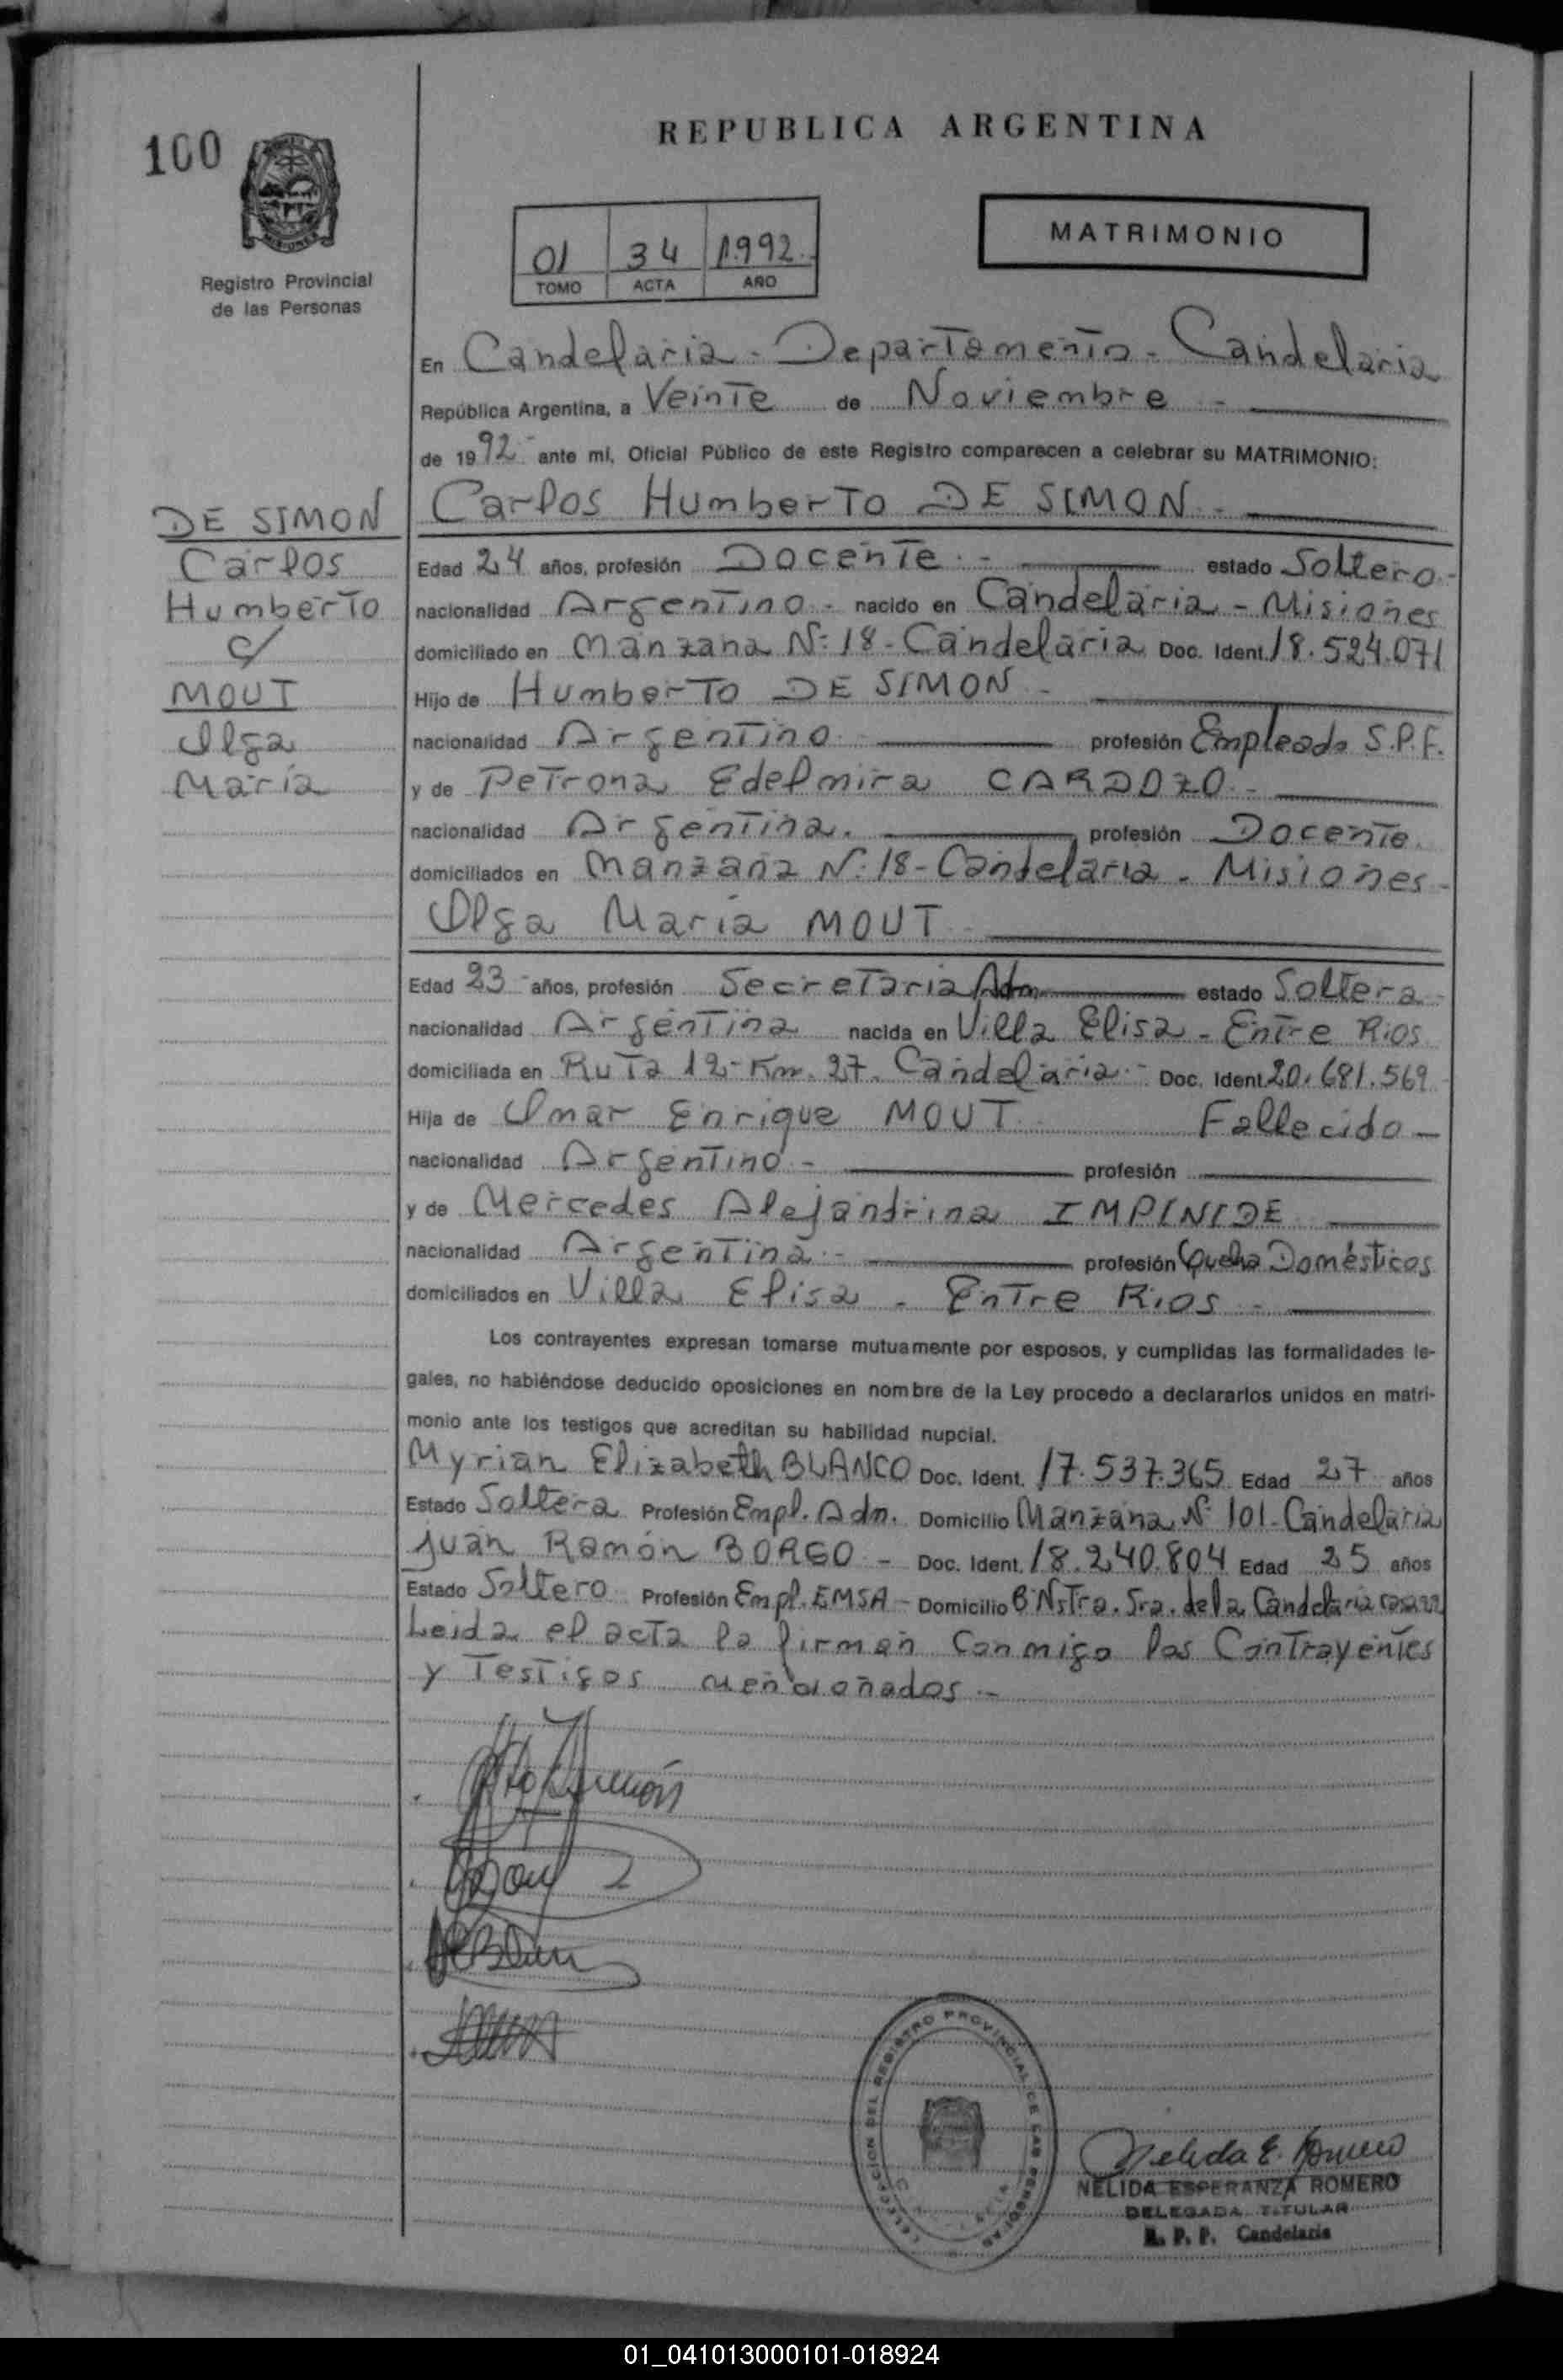 100
REPUBLICA ARGENTINA
MISIONES
Registro Provincial
de las Personas
01 34 1.992
TOMO ACTA AÑO
MATRIMONIO
En Candelaria - Departamento - Candelaria
República Argentina, a Veinte de Noviembre -
de 1992 ante mi, Oficial Público de este Registro comparecen a celebrar su MATRIMONIO:
Carlos Humberto DE SIMON -
DE SIMON
Carlos
Humberto
c/
MOUT
Olga
María
Edad 24 años, profesión Docente - estado Soltero -
nacionalidad Argentino - nacido en Candelaria - Misiones
domiciliado en Manzana Nº 18 - Candelaria Doc. Ident. 18.524.071
Hijo de Humberto DE SIMON -
nacionalidad Argentino profesión Empleado S.P.F.
y de Petrona Edelmira CARDOZO -
nacionalidad Argentina. profesión Docente
domiciliados en Manzana Nº 18 - Candelaria - Misiones -
Olga María MOUT
Edad 23 años, profesión Secretaria Adm. estado Soltera -
nacionalidad Argentina nacida en Villa Elisa - Entre Rios
domiciliada en Ruta 12 - Km. 27. Candelaria - Doc. Ident. 20.681.569
Hija de Omar Enrique MOUT Fallecido -
nacionalidad Argentino - profesión
y de Mercedes Alejandrina IMPINIDE
nacionalidad Argentina - profesión Domésticos
domiciliados en Villa Elisa - Entre Rios -
Los contrayentes expresan tomarse mutuamente por esposos, y cumplidas las formalidades le-
gales, no habiéndose deducido oposiciones en nombre de la Ley procedo a declararlos unidos en matri-
monio ante los testigos que acreditan su habilidad nupcial.
Myrian Elizabeth BLANCO Doc. Ident. 17.537.365 Edad 27 años
Estado Soltera Profesión Empl. Adm. Domicilio Manzana Nº 101 - Candelaria
Juan Ramón BORGO - Doc. Ident. 18.240.804 Edad 25 años
Estado Soltero Profesión Empl. EMSA - Domicilio Bº Nstra. Sra. de la Candelaria
Leida el acta la firman conmigo los Contrayentes
y Testigos mencionados -
DELEGACION DEL REGISTRO PROVINCIAL DE LAS PERSONAS
Nelida E. Romero
NELIDA ESPERANZA ROMERO
DELEGADA TITULAR
R. P. P. Candelaria
01_041013000101-018924